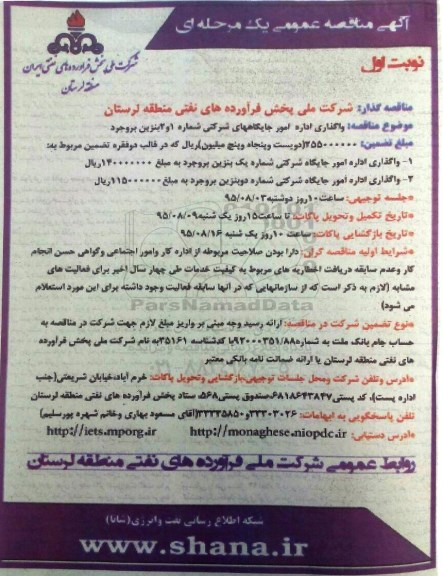 آگهی مناقصه عمومی یک مرحله ای
شرکت ملی پخش فرآورده های نفتی ایران
منطقه لرستان
نوبت اول
مناقصه گذار: شرکت ملی پخش فرآورده های نفتی منطقه لرستان
موضوع مناقصه: واگذاری اداره امور جایگاههای شرکتی شماره ۱و۲بنزین بروجرد
مبلغ تضمین: ۲۵۵۰۰۰۰۰۰(دویست وپنجاه وپنج میلیون)ریال که در قالب دوفقره تضمین مربوط به:
۱- واگذاری اداره امور جایگاه شرکتی شماره یک بنزین بروجرد به مبلغ ۱۴۰۰۰۰۰۰۰ریال
۲- واگذاری اداره امور جایگاه شرکتی شماره دوبنزین بروجرد به مبلغ ۱۱۵۰۰۰۰۰۰ریال
*جلسه توجیهی: ساعت ۱۰روز دوشنبه ۹۵/۰۸/۰۳
*تاریخ تکمیل وتحویل پاکات: تا ساعت۱۵روز یک شنبه ۹۵/۰۸/۰۹
*تاریخ بازگشایی پاکات: ساعت ۱۰روز یک شنبه ۹۵/۰۸/۱۶
*شرایط اولیه مناقصه گران: دارا بودن صلاحیت مربوطه از اداره کار وامور اجتماعی وگواهی حسن انجام
کار وعدم سابقه دریافت اخطاریه های مربوط به کیفیت خدمات طی چهار سال اخیر برای فعالیت های
مشابه (لازم به ذکر است که از سازمانهایی که در آنها سابقه فعالیت وجود داشته برای این مورد استعلام
می شود)
ParsNamadData
*نوع تضمین شرکت در مناقصه: ارائه رسید وجه مبنی بر واریز مبلغ لازم جهت شرکت در مناقصه به
حساب جام بانک ملت به شماره ۹۲۰۰۰۳۵۱/۸۸با کدشناسه ۳۵۱۶۱به نام شرکت ملی پخش فرآورده
های نفتی منطقه لرستان یا ارائه ضمانت نامه بانکی معتبر
*آدرس وتلفن شرکت ومحل جلسات توجیهی،بازگشایی وتحویل پاکات: خرم آباد،خیابان شریعتی(جنب
اداره پست)، کد پستی۶۸۱۸۶۴۳۸۴۷،صندوق پستی۵۶۸، ستاد پخش فرآورده های نفتی منطقه لرستان
تلفن پاسخگویی به ابهامات: ۳۳۳۰۳۰۲۶و۳۳۳۳۵۸۵۰(آقای مسعود بهاری وخانم شهره پورسلیم)
*آدرس دستیابی: http://monaghese.niopdc.ir http://iets.mporg.ir
روابط عمومی شرکت ملی فرآورده های نفتی منطقه لرستان
شبکه اطلاع رسانی نفت وانرژی(شانا)
www.shana.ir